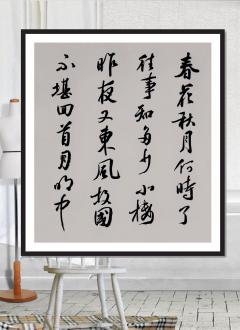 春花秋月何時了
往事知多少小樓
昨夜又東風故國
不堪回首月明中